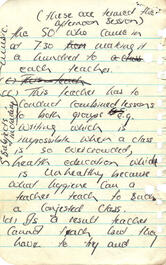 (these are removed
afternoon session)
the 50 who came in
at 7.30 making it
a hundred to
each teacher.
This teacher has to
conduct combined lessons
to both groups e.g.
writing which is
impossible when a class
is so overcrowded,
health education which
is unhealthy because
what hygiene can a
teacher teach to such
a congested class.
As a result teachers
cannot teach but they
have to try and